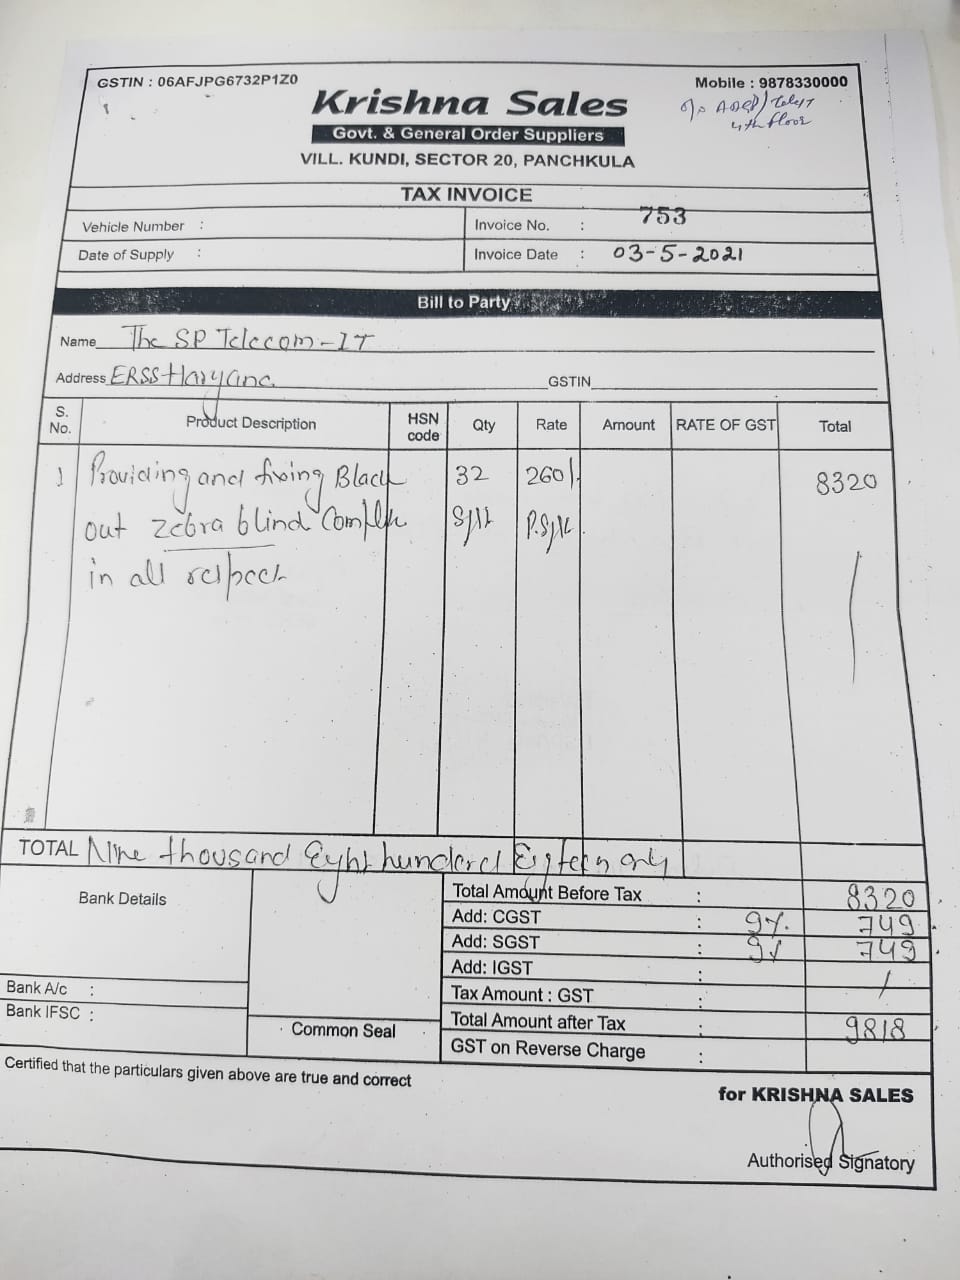 GSTIN : 06AFJPG6732P1Z0
Mobile : 9878330000
Krishna Sales
4th floor
Govt. & General Order Suppliers
VILL. KUNDI, SECTOR 20, PANCHKULA
TAX INVOICE
Vehicle Number : Invoice No. : 753
Date of Supply : Invoice Date : 03-5-2021
Bill to Party
Name The SP Telecom-IT
Address ERSS Haryana GSTIN
S. No. Product Description HSN code Qty Rate Amount RATE OF GST Total
1 Providing and fixing Black 32 260/- 8320
out zebra blind
in all respect
TOTAL Nine thousand Eight hundered Eigteen only
Bank Details
Total Amount Before Tax : 8320
Add: CGST : 9% 749
Add: SGST : 9% 749
Add: IGST : /
Bank A/c :
Tax Amount : GST :
Bank IFSC :
Common Seal
Total Amount after Tax : 9818
GST on Reverse Charge :
Certified that the particulars given above are true and correct
for KRISHNA SALES
Authorised Signatory